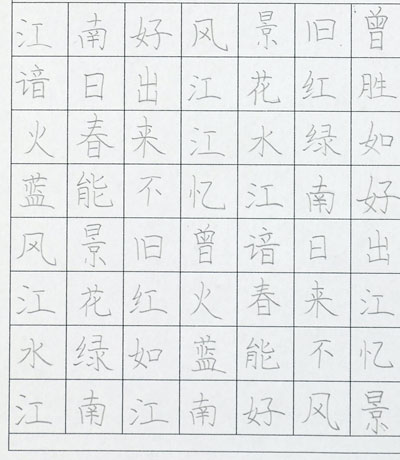 江南好风景旧曾
谙日出江花红胜
火春来江水绿如
蓝能不忆江南好
风景旧曾谙日出
江花红火春来江
水绿如蓝能不忆
江南江南好风景